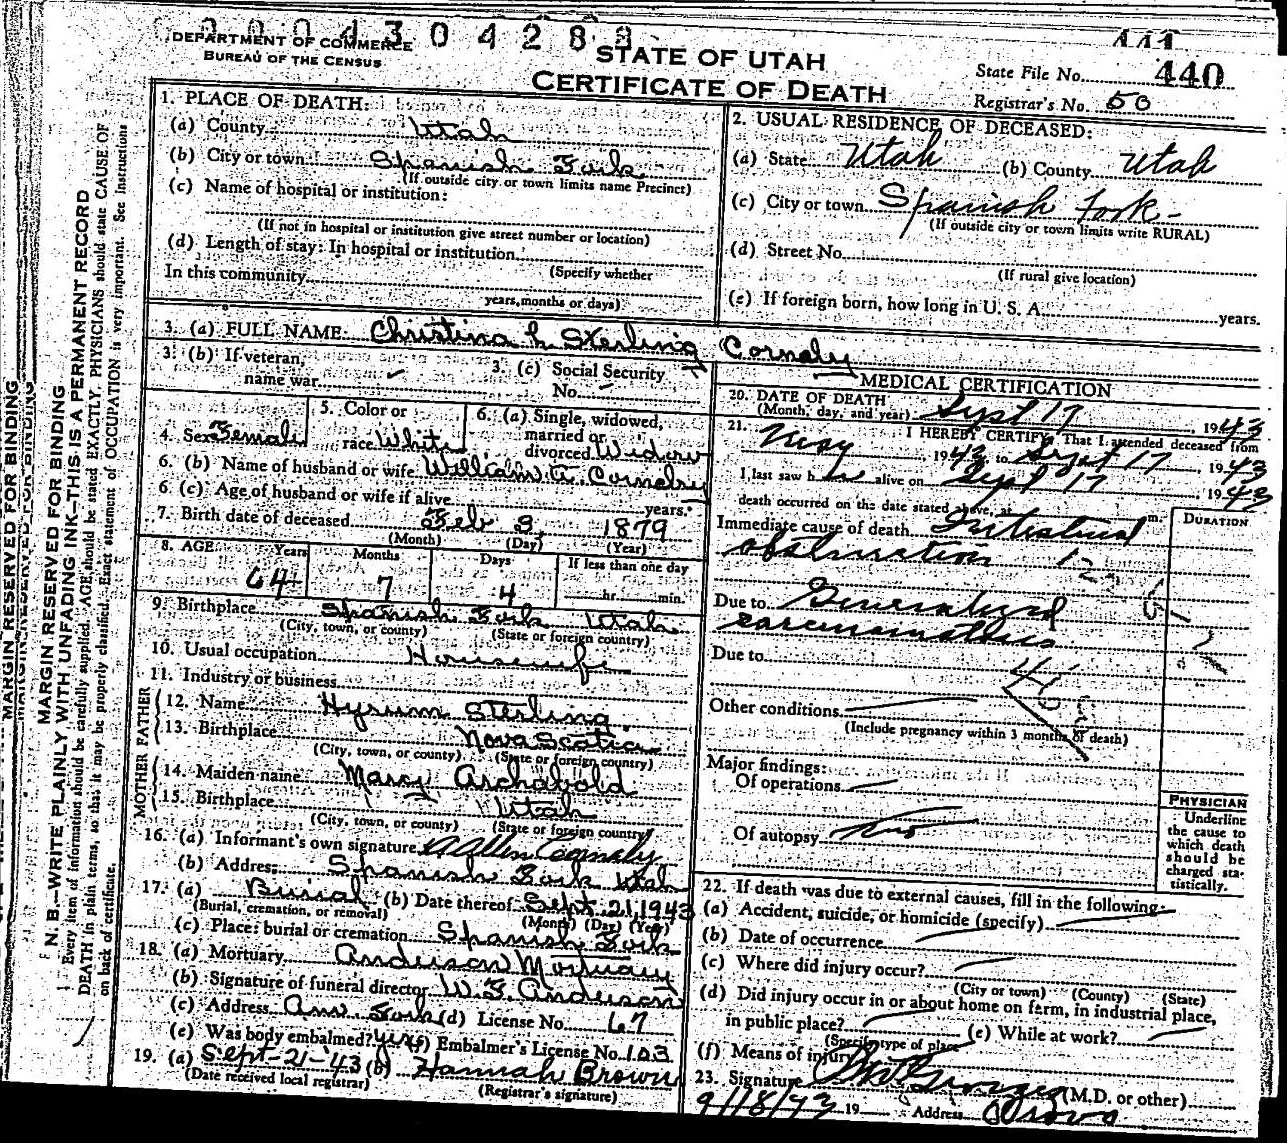 2004304288
DEPARTMENT OF COMMERCE
BUREAU OF THE CENSUS
STATE OF UTAH
CERTIFICATE OF DEATH
441
State File No. 440
Registrar's No. 50
MARGIN RESERVED FOR BINDING
MARGIN RESERVED FOR BINDING
N. B.—WRITE PLAINLY WITH UNFADING INK—THIS IS A PERMANENT RECORD
Every item of information should be carefully supplied. AGE should be stated EXACTLY. PHYSICIANS should state CAUSE OF
DEATH in plain terms, so that it may be properly classified. Exact statement of OCCUPATION is very important. See Instructions
on back of certificate.
1. PLACE OF DEATH:
(a) County Utah
(b) City or town Spanish Fork
(If outside city or town limits name Precinct)
(c) Name of hospital or institution:
(If not in hospital or institution give street number or location)
(d) Length of stay: In hospital or institution
(Specify whether
In this community
years, months or days)
2. USUAL RESIDENCE OF DECEASED:
(a) State Utah (b) County Utah
(c) City or town Spanish Fork
(If outside city or town limits write RURAL)
(d) Street No.
(If rural give location)
(e) If foreign born, how long in U. S. A. years.
3. (a) FULL NAME: Christina L Sterling Cornaby
3. (b) If veteran,
name war
3. (c) Social Security
No.
4. Sex Female
5. Color or
race White
6. (a) Single, widowed,
married or
divorced Widow
6. (b) Name of husband or wife William A. Cornaby
6. (c) Age of husband or wife if alive years.
7. Birth date of deceased Feb 3, 1879
(Month) (Day) (Year)
8. AGE Years Months Days If less than one day
64 7 4 hr. min.
9. Birthplace Spanish Fork Utah
(City, town, or county) (State or foreign country)
10. Usual occupation Housewife
11. Industry or business
FATHER
12. Name Hyrum Sterling
13. Birthplace Nova Scotia
(City, town, or county) (State or foreign country)
MOTHER
14. Maiden name Marcy Archabold
15. Birthplace Utah
(City, town, or county) (State or foreign country)
16. (a) Informant's own signature Allen Cornaby
(b) Address Spanish Fork Utah
17. (a) Burial (b) Date thereof Sept. 21, 1943
(Burial, cremation, or removal) (Month) (Day) (Year)
(c) Place: burial or cremation Spanish Fork
18. (a) Mortuary Anderson Mortuary
(b) Signature of funeral director W. F. Anderson
(c) Address Am. Fork (d) License No. 67
(e) Was body embalmed? yes (f) Embalmer's License No. 103
19. (a) Sept-21-'43 (b) Hannah Brown
(Date received local registrar) (Registrar's signature)
MEDICAL CERTIFICATION
20. DATE OF DEATH
(Month, day, and year) Sept 17 1943
21. I HEREBY CERTIFY, That I attended deceased from
May 1943 to Sept 17 1943
I last saw her alive on Sept 17 1943
death occurred on the date stated above, at m.
DURATION
Immediate cause of death Intestinal
obstruction
Due to Generalized
carcinomatosis
Due to
Other conditions
(Include pregnancy within 3 months of death)
Major findings:
Of operations
Of autopsy no
PHYSICIAN
Underline
the cause to
which death
should be
charged sta-
tistically.
22. If death was due to external causes, fill in the following:
(a) Accident, suicide, or homicide (specify)
(b) Date of occurrence
(c) Where did injury occur?
(City or town) (County) (State)
(d) Did injury occur in or about home on farm, in industrial place,
in public place? (e) While at work?
(Specify type of place
(f) Means of injury
23. Signature (M.D. or other)
9/18/43 19 Address Provo